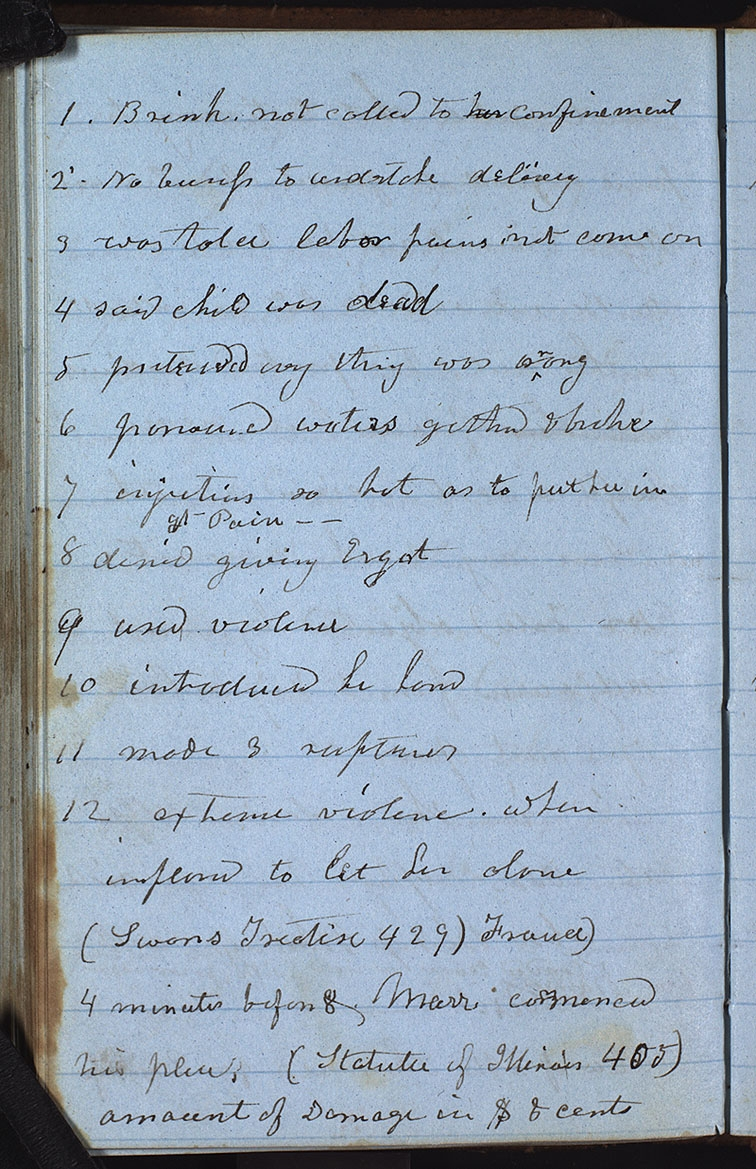 1. Brink. not called to her confinement
2. No buisness to undertake delivery
3 was told labor pains not come on
4 said child was dead
5 pretended evry thing was wrong
6 pronounced waters gathered & broke
7 injections so hot as to put her in
gt Pain — —
8 denied giving Ergot
9 used violence
10 introduced he hand
11 made 3 ruptures
12 extreme violence. when
implored to let her alone
(Swans Treatise 429)
4 minutes before 8. Marr commenced
his plea; (Statutes of Illinois 405)
amount of Damage in $ & cents